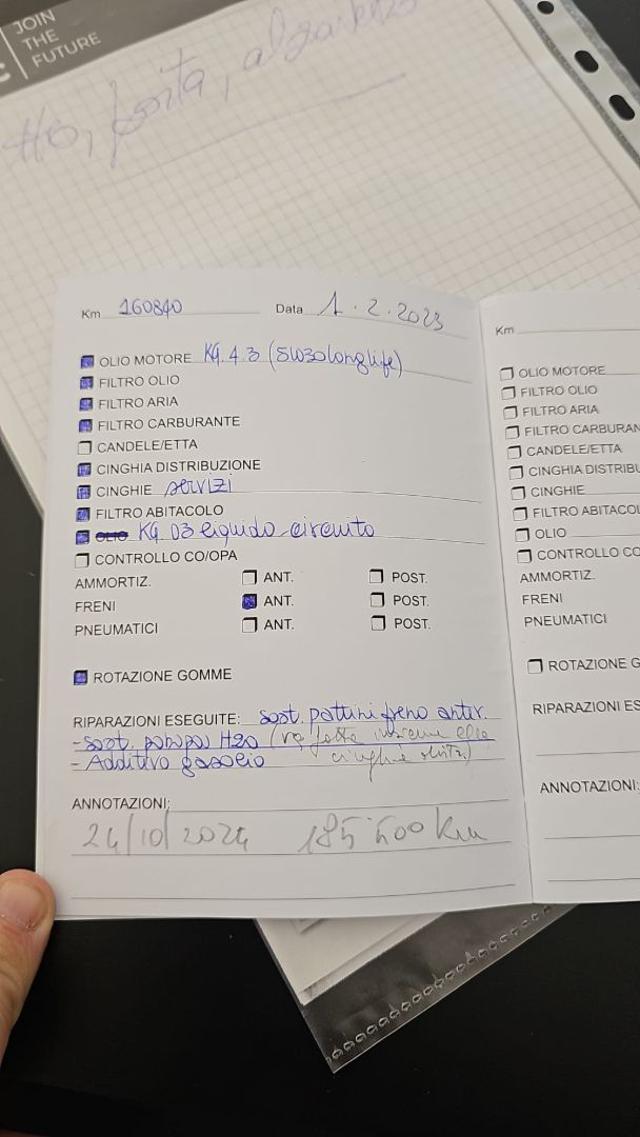 JOIN
THE
FUTURE
Km 160840 Data 1.2.2023
OLIO MOTORE KG. 4.3 (5W30 longlife)
FILTRO OLIO
FILTRO ARIA
FILTRO CARBURANTE
CANDELE/ETTA
CINGHIA DISTRIBUZIONE
CINGHIE servizi
FILTRO ABITACOLO
OLIO KG 03 liquido circuito
CONTROLLO CO/OPA
AMMORTIZ. ANT. POST.
FRENI ANT. POST.
PNEUMATICI ANT. POST.
ROTAZIONE GOMME
RIPARAZIONI ESEGUITE: sost. pattini freno anter.
- sost. pompa H20 (va fatta insieme alla
- Additivo gasolio cinghia
ANNOTAZIONI:
24/10/2024 185 500 km
Km
OLIO MOTORE
FILTRO OLIO
FILTRO ARIA
FILTRO CARBURAN
CANDELE/ETTA
CINGHIA DISTRIBU
CINGHIE
FILTRO ABITACOL
OLIO
CONTROLLO CO
AMMORTIZ.
FRENI
PNEUMATICI
ROTAZIONE G
RIPARAZIONI ES
ANNOTAZIONI: